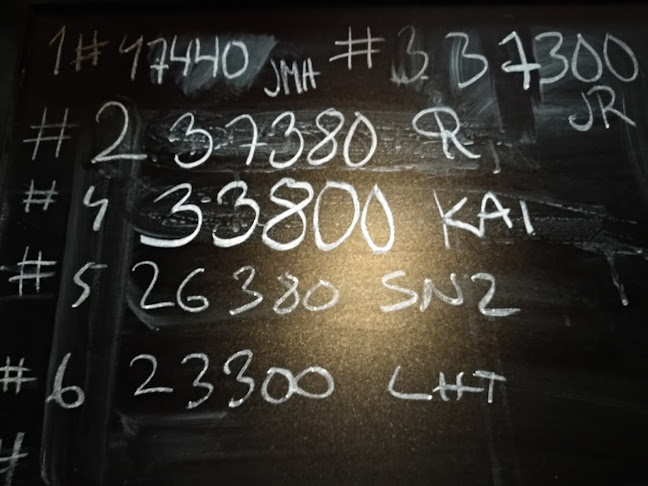 1# 47440 JMH # 3 37300 JR
# 2 37380 R
# 4 33800 KAI
# 5 26380 SNZ
# 6 23300 LHT
#